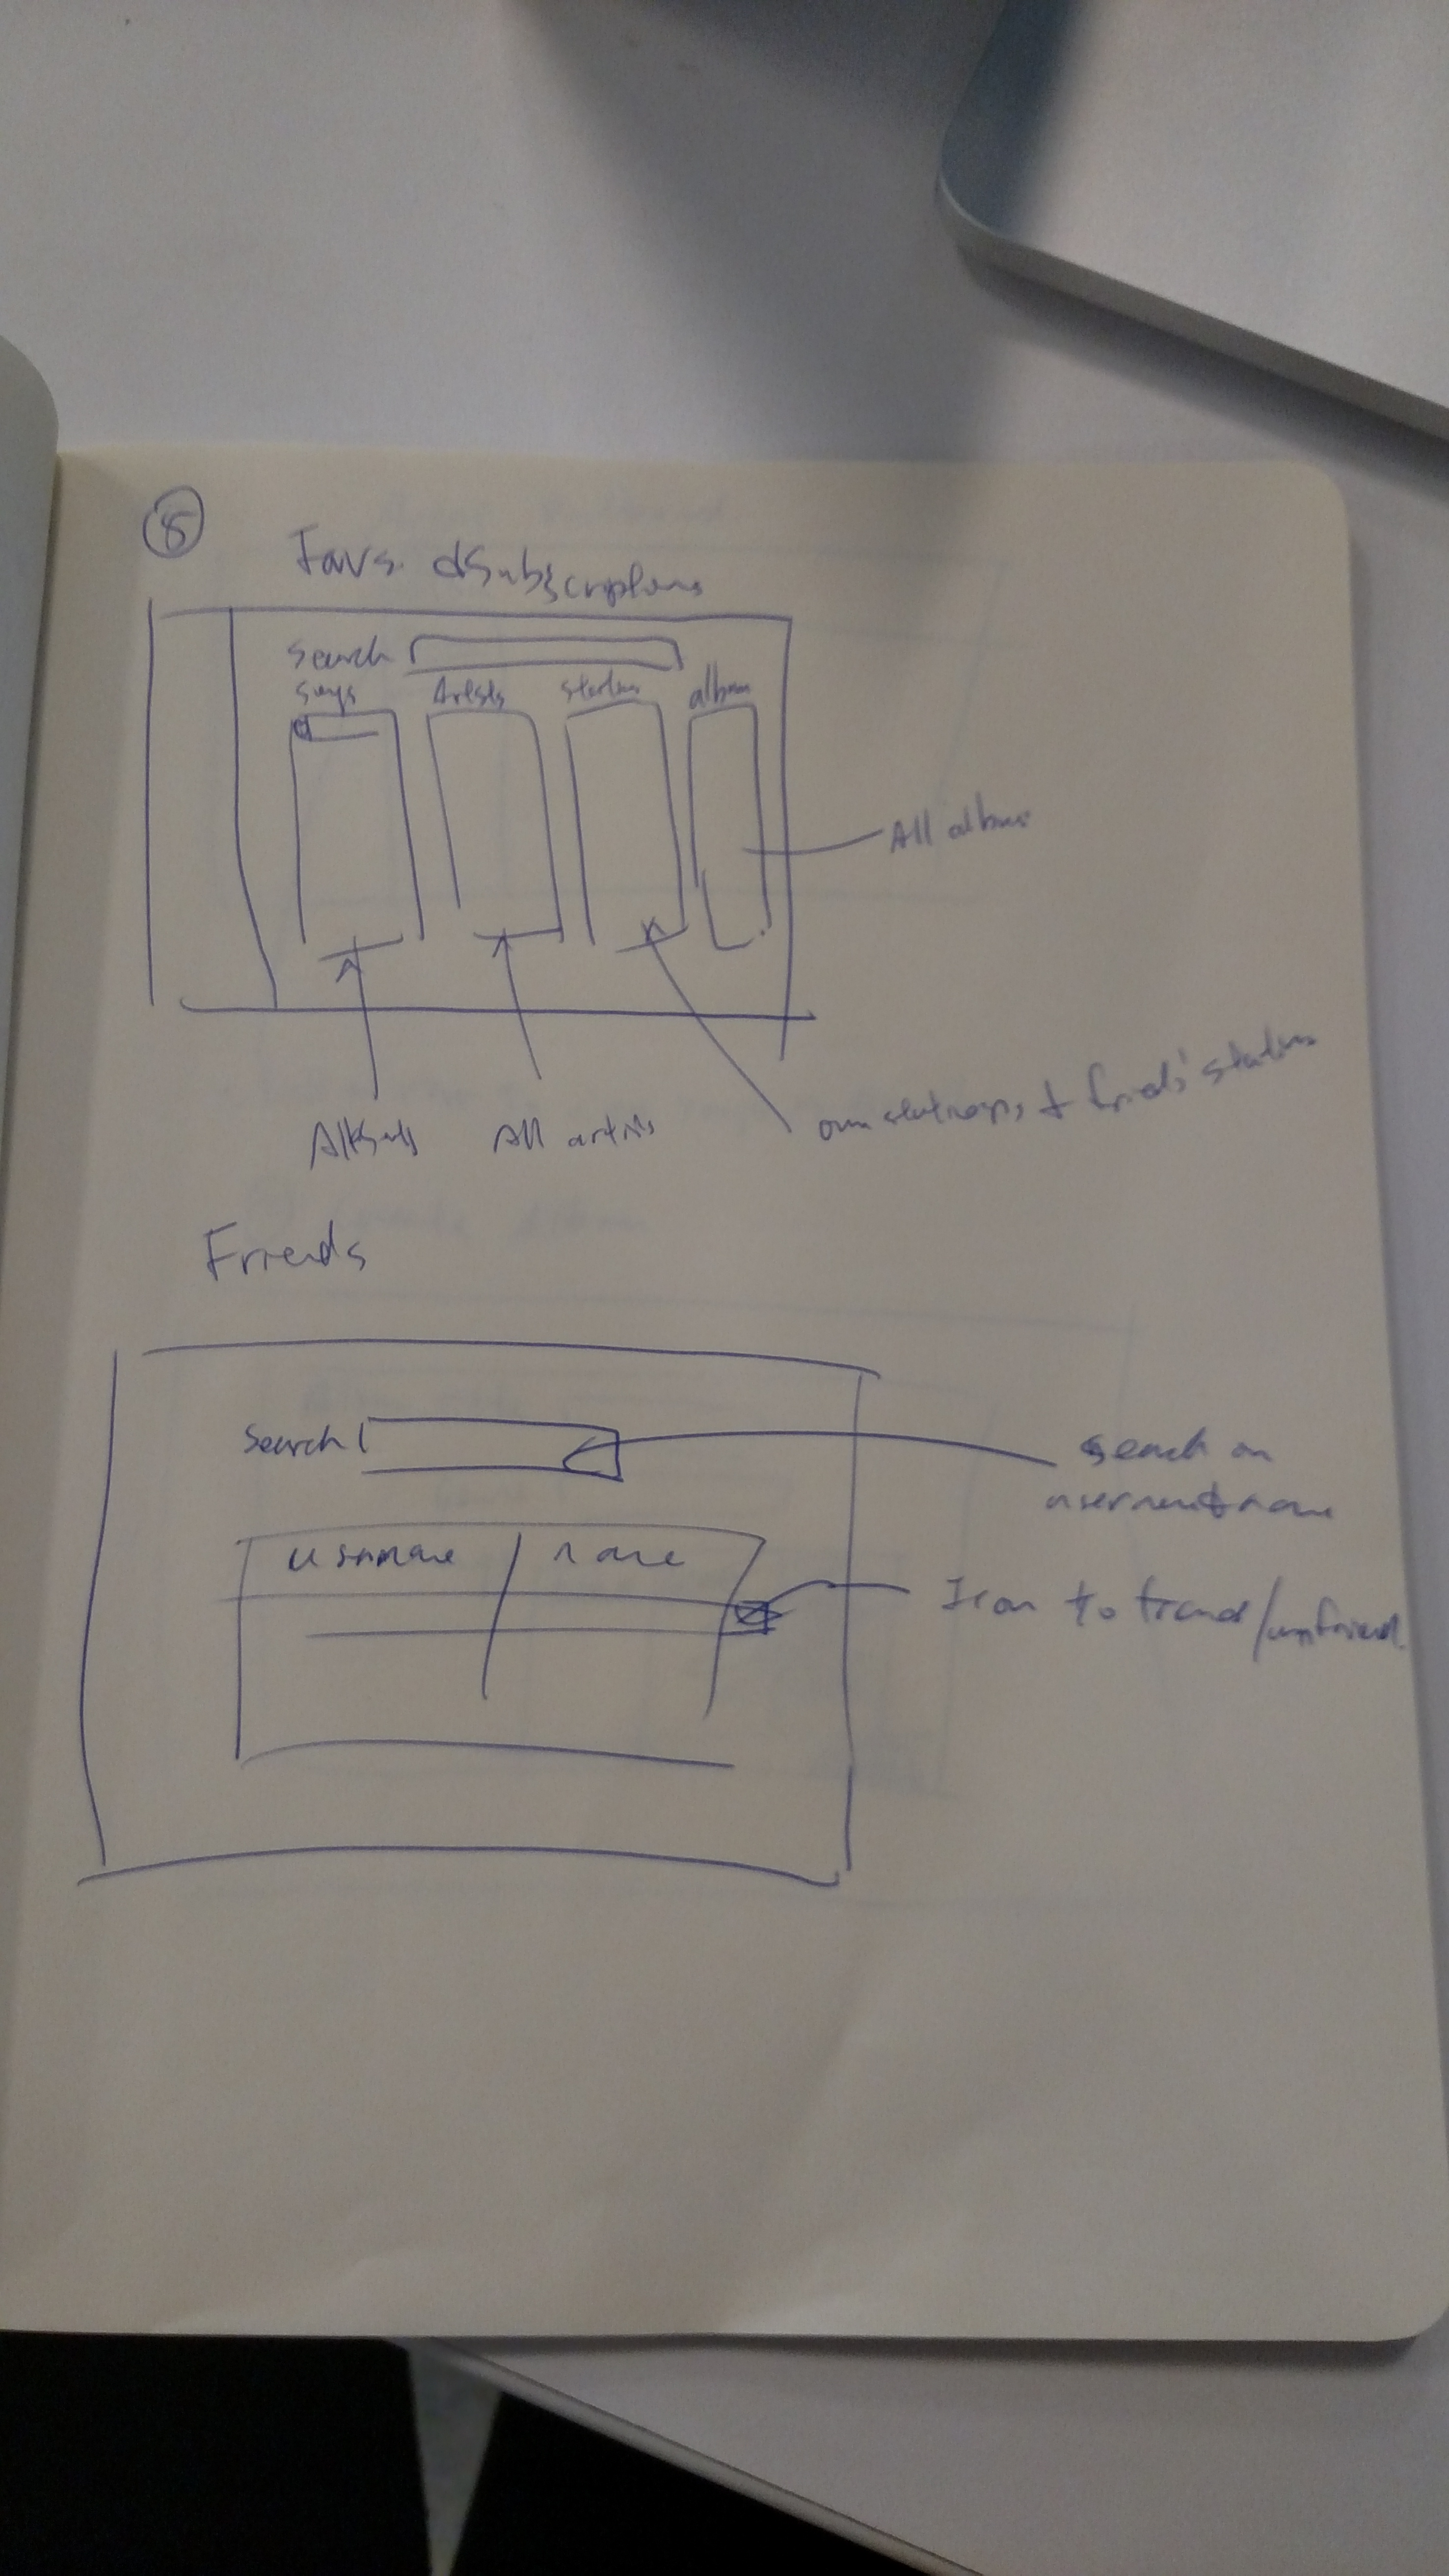 8
Favs. & Subscriptions
Search
Songs Artists stations album
All albums
All songs All artists own stations & friends' stations
Friends
Search
search on
username & name
username name
Icon to friend/unfriend